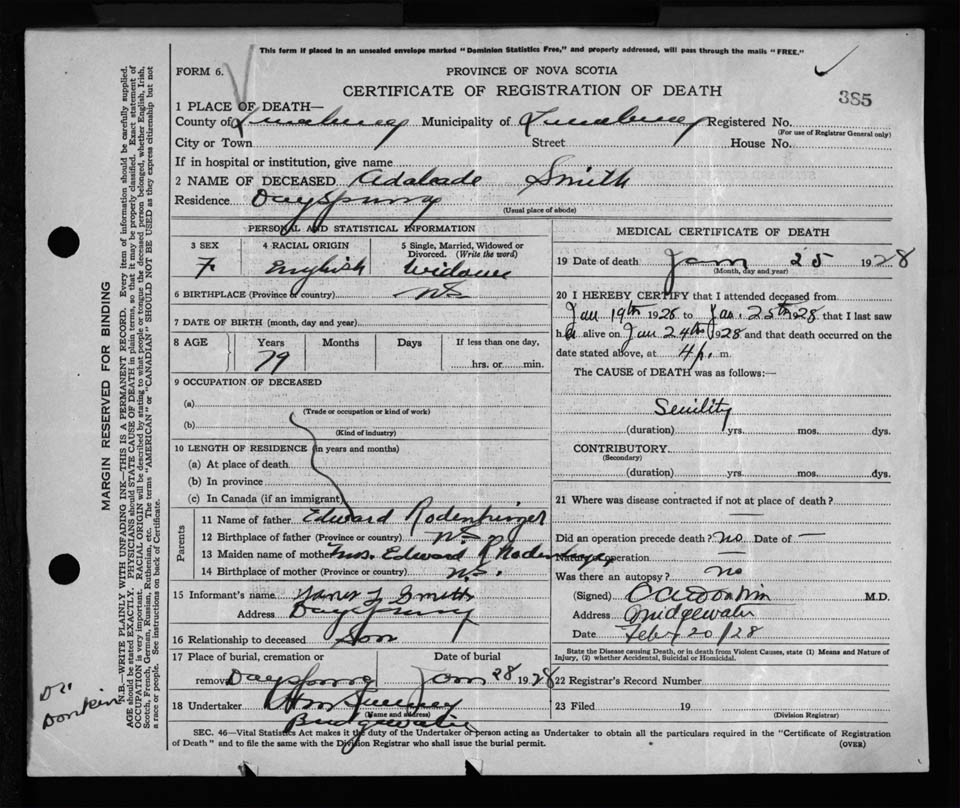 This form if placed in an unsealed envelope marked "Dominion Statistics Free," and properly addressed, will pass through the mails "FREE."
FORM 6.
PROVINCE OF NOVA SCOTIA
CERTIFICATE OF REGISTRATION OF DEATH
385
1 PLACE OF DEATH—
County of Lunenburg Municipality of Lunenburg Registered No.
(For use of Registrar General only)
City or Town Street House No.
If in hospital or institution, give name
2 NAME OF DECEASED Adaleade Smith
Residence Dayspring
(Usual place of abode)
PERSONAL AND STATISTICAL INFORMATION
3 SEX
4 RACIAL ORIGIN
5 Single, Married, Widowed or Divorced. (Write the word)
F. English Widow
6 BIRTHPLACE (Province or country) N.S.
7 DATE OF BIRTH (month, day and year)
8 AGE Years Months Days If less than one day,
79 hrs. or min.
9 OCCUPATION OF DECEASED
(a)
(Trade or occupation or kind of work)
(b)
(Kind of industry)
10 LENGTH OF RESIDENCE (in years and months)
(a) At place of death
(b) In province
(c) In Canada (if an immigrant)
Parents
11 Name of father Edward Rodenhizer
12 Birthplace of father (Province or country) N.S.
13 Maiden name of mother Mrs. Edward Rodenhizer
14 Birthplace of mother (Province or country) N.S.
15 Informant's name Smith
Address Dayspring
16 Relationship to deceased Son
17 Place of burial, cremation or removal Dayspring
Date of burial Jan 28 1928
18 Undertaker
(Name and address)
Bridgewater
MEDICAL CERTIFICATE OF DEATH
19 Date of death Jan 25 1928
(Month, day and year)
20 I HEREBY CERTIFY that I attended deceased from
Jan 19th 1928 to Jan. 25th 1928 that I last saw
h alive on Jan 24th 1928 and that death occurred on the
date stated above, at 4 p. m.
The CAUSE of DEATH was as follows:—
Senility
(duration) yrs. mos. dys.
CONTRIBUTORY
(Secondary)
(duration) yrs. mos. dys.
21 Where was disease contracted if not at place of death?
—
Did an operation precede death? no Date of —
Nature of operation —
Was there an autopsy? no
(Signed) C A Donkin M.D.
Address Bridgewater
Date Feby 20/28
State the Disease causing Death, or in death from Violent Causes, state (1) Means and Nature of
Injury, (2) whether Accidental, Suicidal or Homicidal.
22 Registrar's Record Number
23 Filed 19
(Division Registrar)
SEC. 46—Vital Statistics Act makes it the duty of the Undertaker or person acting as Undertaker to obtain all the particulars required in the "Certificate of Registration
of Death" and to file the same with the Division Registrar who shall issue the burial permit.
(OVER)
MARGIN RESERVED FOR BINDING
N.B.—WRITE PLAINLY WITH UNFADING INK—THIS IS A PERMANENT RECORD. Every item of information should be carefully supplied.
AGE should be stated EXACTLY. PHYSICIANS should STATE CAUSE OF DEATH in plain terms, so that it may be properly classified. Exact statement of
OCCUPATION is very important. RACIAL ORIGIN will be described by stating to what people or tongue the deceased person belonged, whether English, Irish,
Scotch, French, German, Russian, Ruthenian, etc. The terms "AMERICAN" or "CANADIAN" SHOULD NOT BE USED as they express citizenship but not
a race or people. See instructions on back of Certificate.
Dr
Donkin